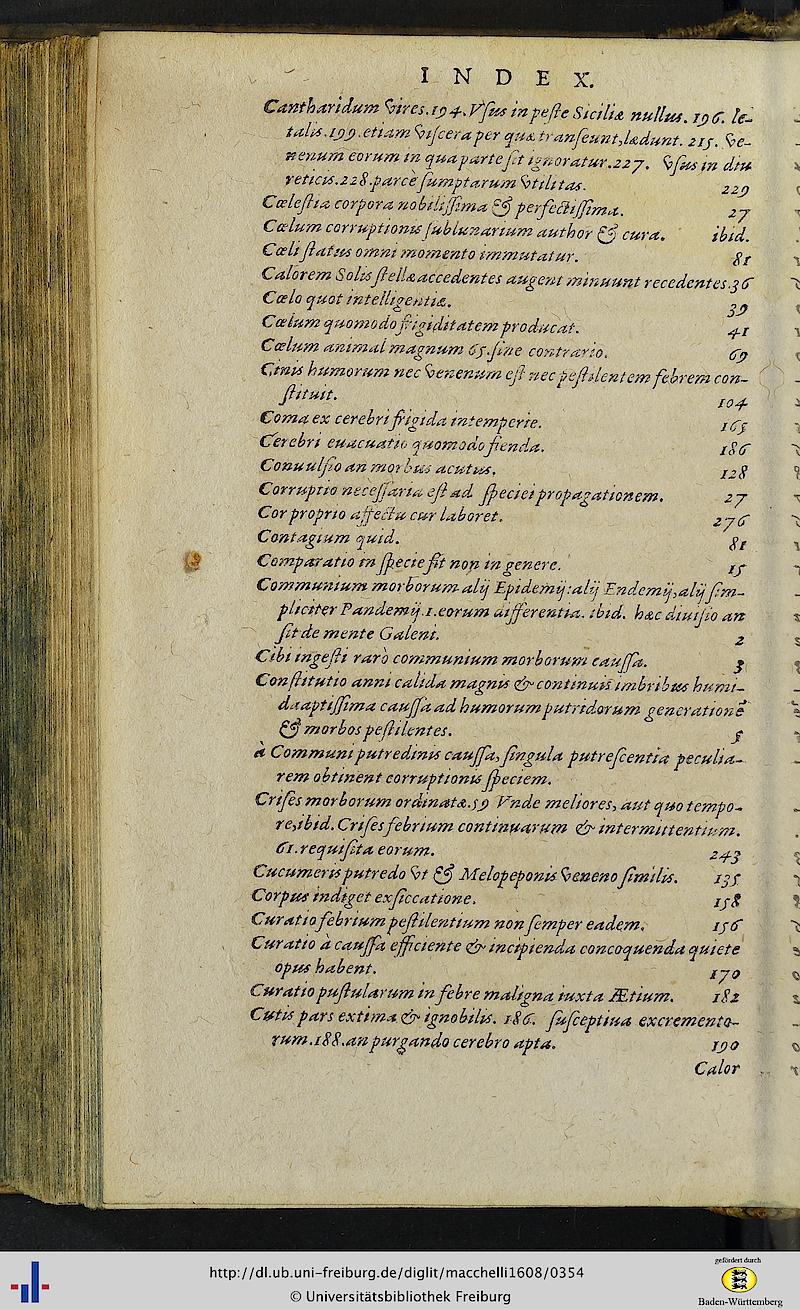 INDEX.
Cantharidum vires.194.Vſus in peſte Siciliæ nullus. 196. le-
talis.199.etiam viſcera per quæ tranſeunt,lædunt. 215. ve-
nenum eorum in qua parte ſit ignoratur.227. vſus in diu
reticis.228.parcè ſumptarum vtilitas. 229
Cœleſtia corpora nobiliſſima & perfectiſſima. 27
Cœlum corruptionis ſublunarium author & cura. ibid.
Cœli ſtatus omni momento immutatur. 81
Calorem Solis ſtellæ accedentes augent minuunt recedentes.36
Cœlo quot intelligentiæ. 39
Cœlum quomodo frigiditatem producat. 41
Cœlum animal magnum 65.ſine contrario. 69
Cinis humorum nec venenum eſt nec peſtilentem febrem con-
ſtituit. 104
Coma ex cerebri frigida intemperie. 165
Cerebri euacuatio quomodo fienda. 186
Conuulſio an morbus acutus. 128
Corruptio neceſſaria eſt ad ſpeciei propagationem. 27
Cor proprio affectu cur laboret. 276
Contagium quid. 81
Comparatio in ſpecie fit non in genere. 15
Communium morborum alij Epidemij:alij Endemij,alij ſim-
pliciter Pandemij.1.eorum differentia. ibid. hæc diuiſio an
ſit de mente Galeni. 2
Cibi ingeſti rarò communium morborum cauſſa. 3
Conſtitutio anni calida magnis & continuis imbribus humi-
da aptiſſima cauſſa ad humorum putridorum generationē
& morbos peſtilentes. 5
à Communi putredinis cauſſa, ſingula putreſcentia peculia-
rem obtinent corruptionis ſpeciem.
Criſes morborum ordinatæ.59 Vnde meliores, aut quo tempo-
re,ibid. Criſes febrium continuarum & intermittentium.
61.requiſita eorum. 243
Cucumeris putredo vt & Melopeponis veneno ſimilis. 135
Corpus indiget exſiccatione. 158
Curatio febrium peſtilentium non ſemper eadem. 156
Curatio à cauſſa efficiente & incipienda concoquenda quiete
opus habent. 170
Curatio puſtularum in febre maligna iuxta Ætium. 182
Cutis pars extima & ignobilis. 186. ſuſceptiua excremento-
rum.188.an purgando cerebro apta. 190
Calor
http://dl.ub.uni-freiburg.de/diglit/macchelli1608/0354
© Universitätsbibliothek Freiburg
gefördert durch
Baden-Württemberg